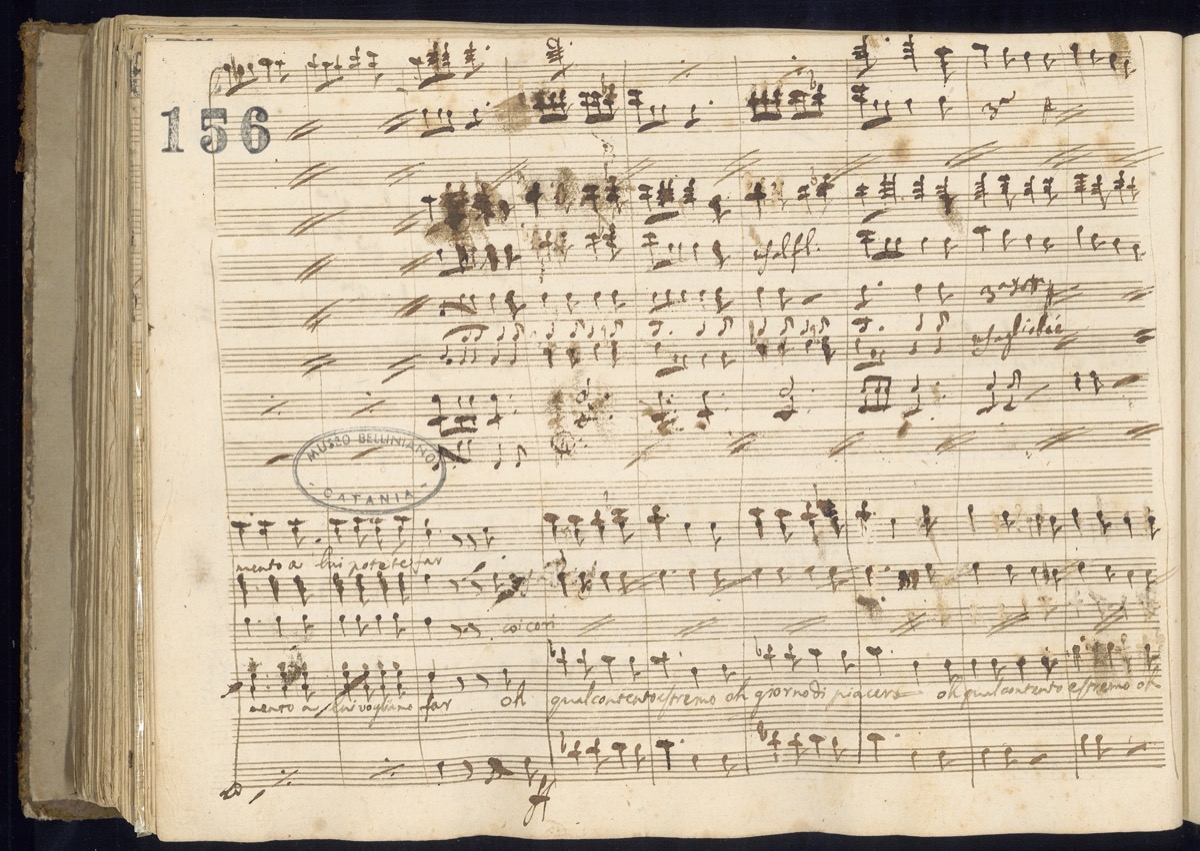 156
MUSEO BELLINIANO
CATANIA
mento a lui potete far
coi cori
mento a lui vogliamo far oh qual contento estremo oh giorno di piacere oh qual contento estremo oh
ff